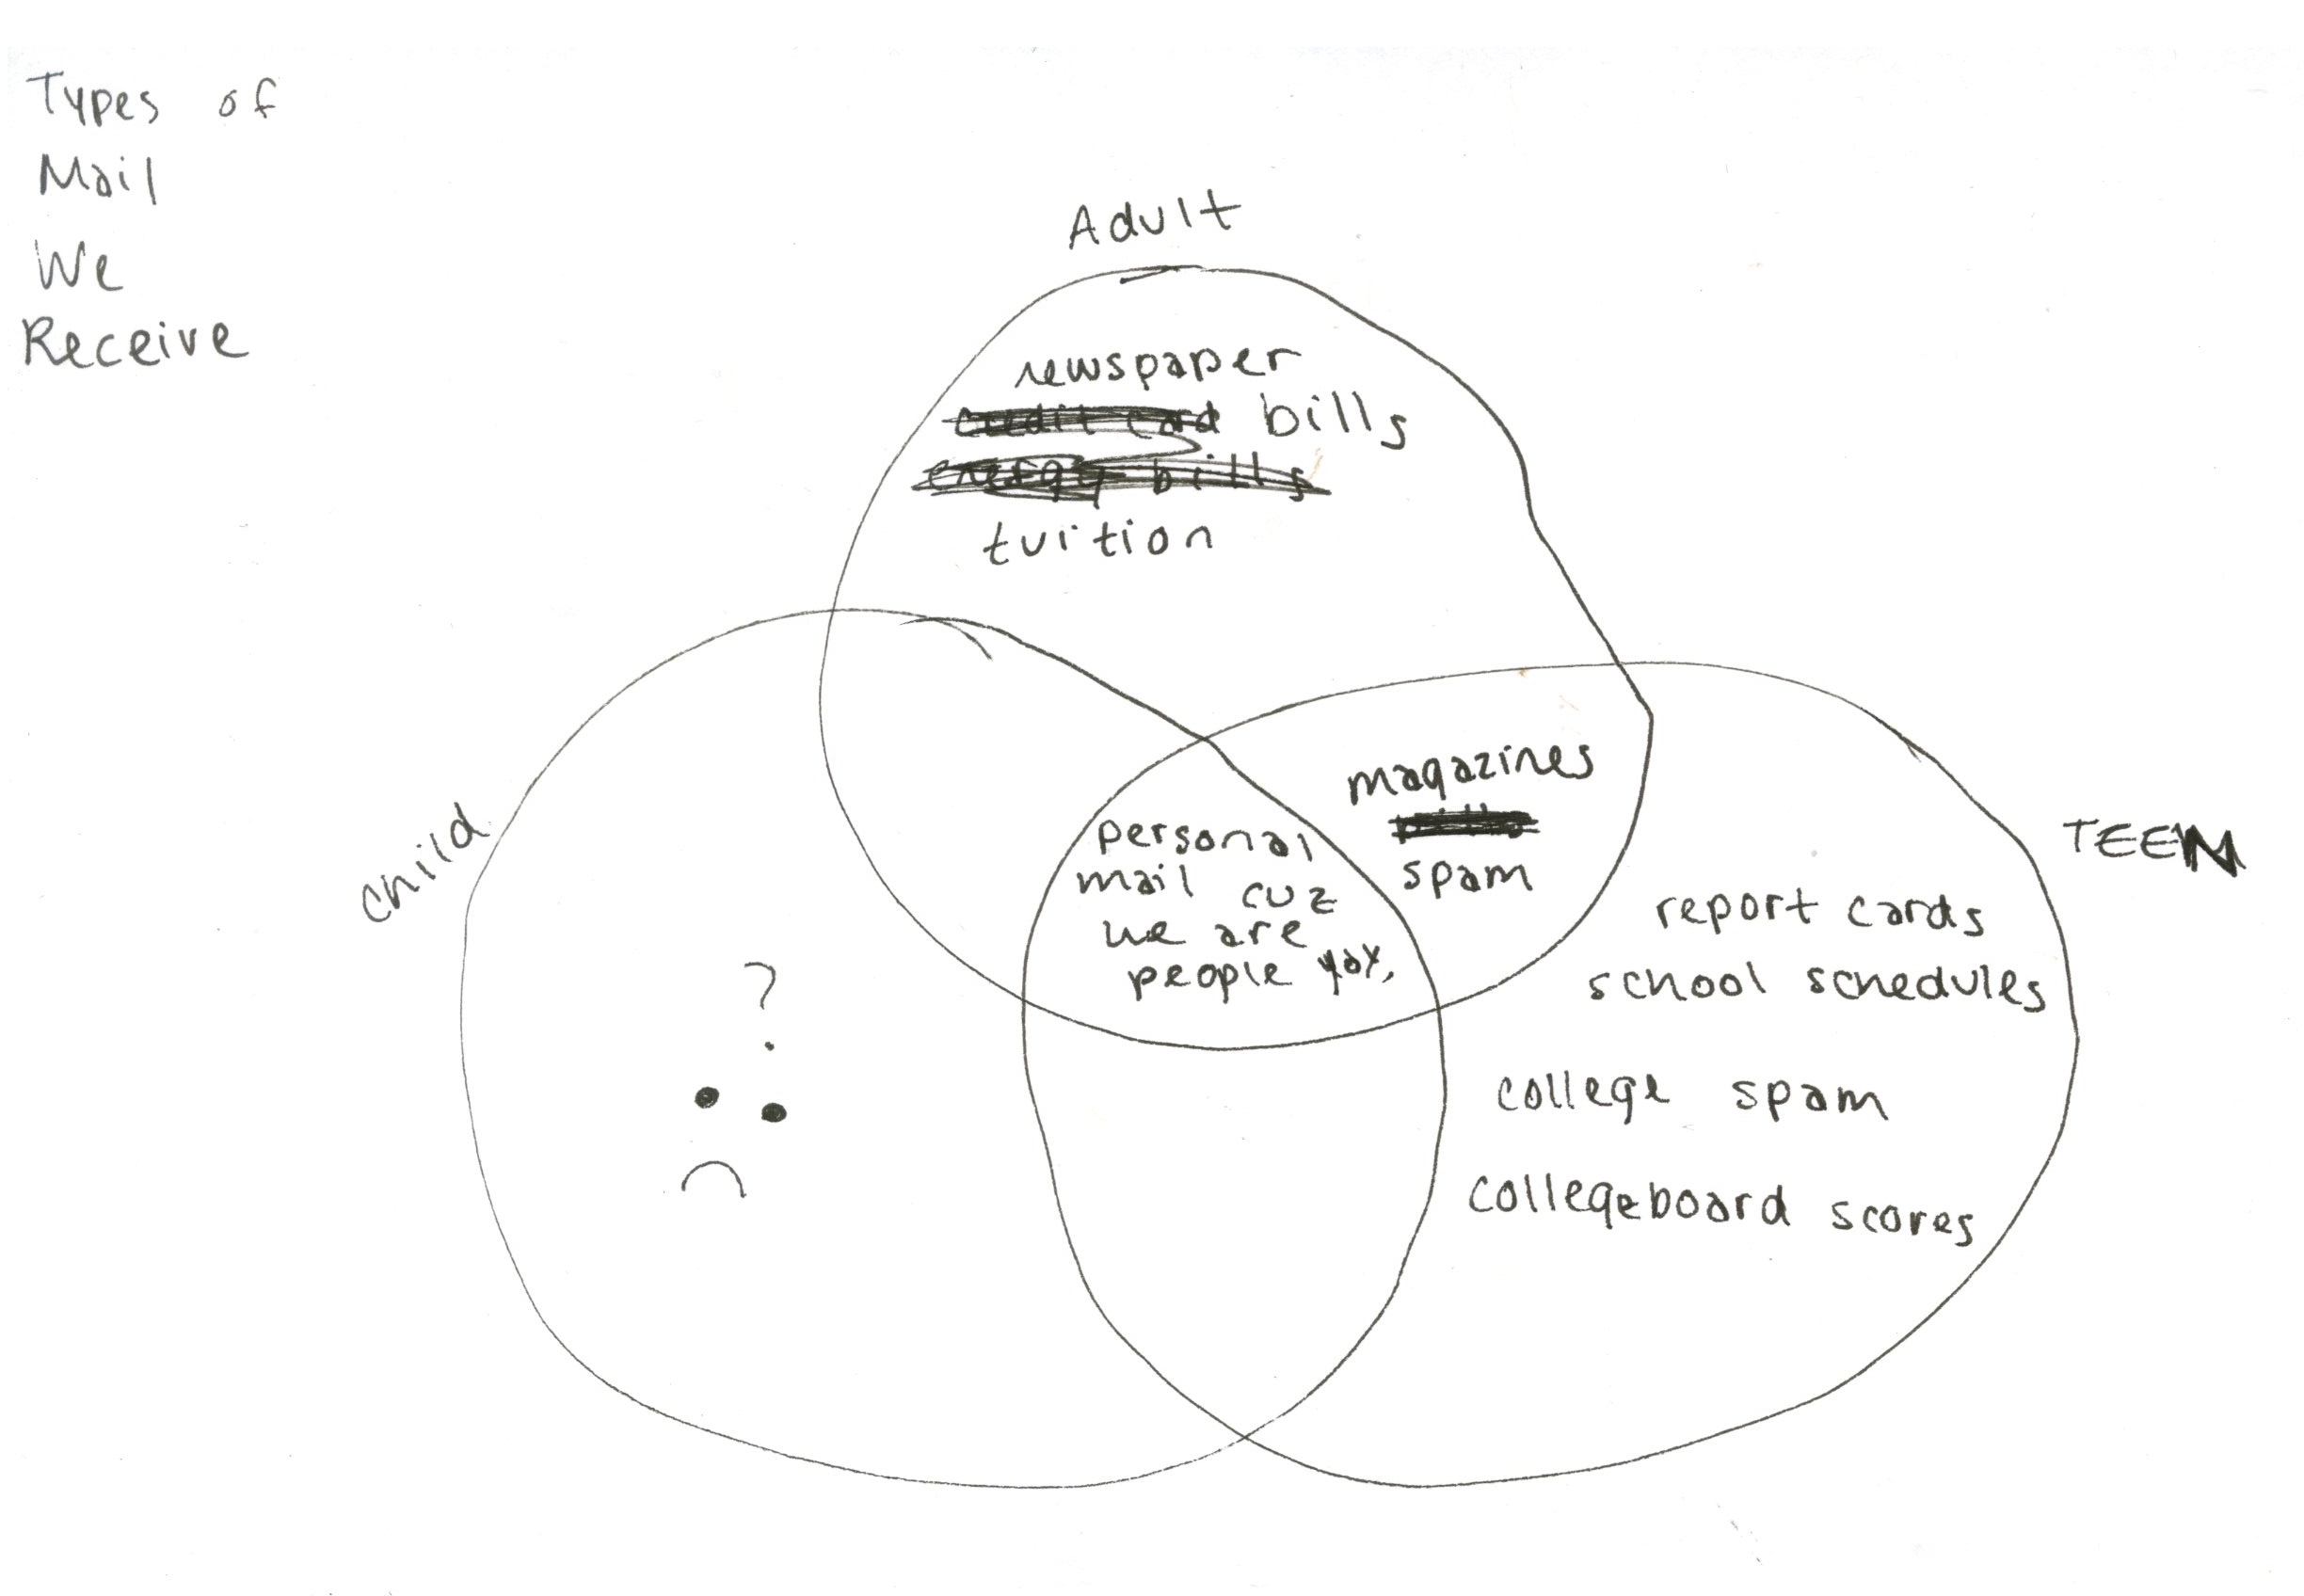 Types of
Mail
We
Receive
Adult
newspaper
credit card bills
energy bills
tuition
child
magazines
bills
spam
personal
mail cuz
we are
people yay
TEEN
report cards
school schedules
college spam
collegeboard scores
?